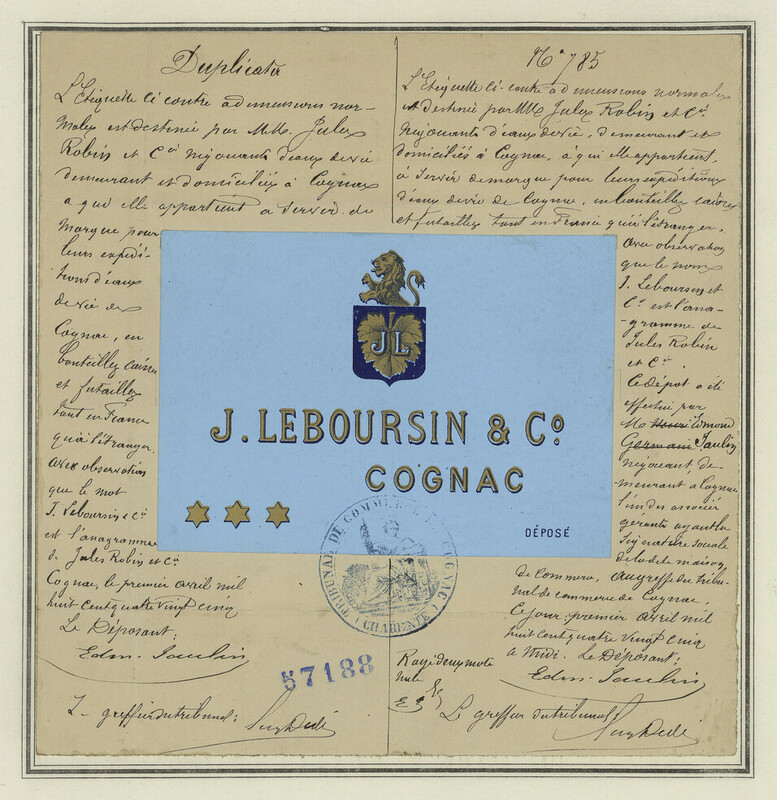 Duplicata
L'Etiquette ci contre a dimensions nor-
males est destinée par M.M. Jules
Robin et Cie négociants d'eaux de vie
demeurant et domiciliés à Cognac
a qui elle appartient a servir de
marque pour
leurs expédi-
tions d'eaux
de vie de
Cognac, en
bouteilles caisses
et futailles
tant en France
qu'à l'étranger.
Avec observation
que le mot
J. Leboursin & Cie
est l'anagramme
de Jules Robin et Cie
Cognac, le premier avril mil
huit cent quatre vingt cinq
Le Déposant:
Edm. Jaulin
Le greffier du tribunal:
No 785
L'Etiquette ci-contre a dimensions normales
est destinée par MM. Jules Robin et Cie
Négociants d'eaux de vie, demeurant et
domiciliés à Cognac, à qui elle appartient,
à servir de marque pour leurs expéditions
d'eaux de vie de Cognac, en bouteilles caisses
et futailles tant en France qu'à l'étranger,
Avec observation
que le nom
J. Leboursin et
Cie est l'ana-
gramme de
Jules Robin
et Cie.
Ce dépôt a été
effectué par
Mr Henri Edmond
Germain Jaulin
négociant, de-
meurant a Cognac
l'un des associés
gérants ayant la
signature sociale
de la dite maison
de Commerce, Au greffe du tribu-
nal de commerce de Cognac,
Ce jour, premier Avril mil
huit cent quatre vingt cinq
a Midi. Le Déposant:
Edm. Jaulin
Rayé deux mots
nuls
Le greffier du tribunal
JL
J. LEBOURSIN & Co
COGNAC
DÉPOSÉ
TRIBUNAL DE COMMERCE DE COGNAC
(CHARENTE)
57188